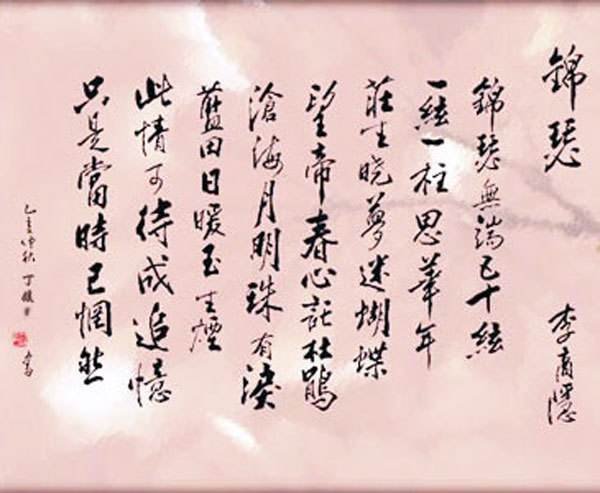 錦瑟
李商隱
錦瑟無端五十絃
一絃一柱思華年
莊生曉夢迷蝴蝶
望帝春心託杜鵑
滄海月明珠有淚
藍田日暖玉生煙
此情可待成追憶
只是當時已惘然
乙亥仲秋 丁 書